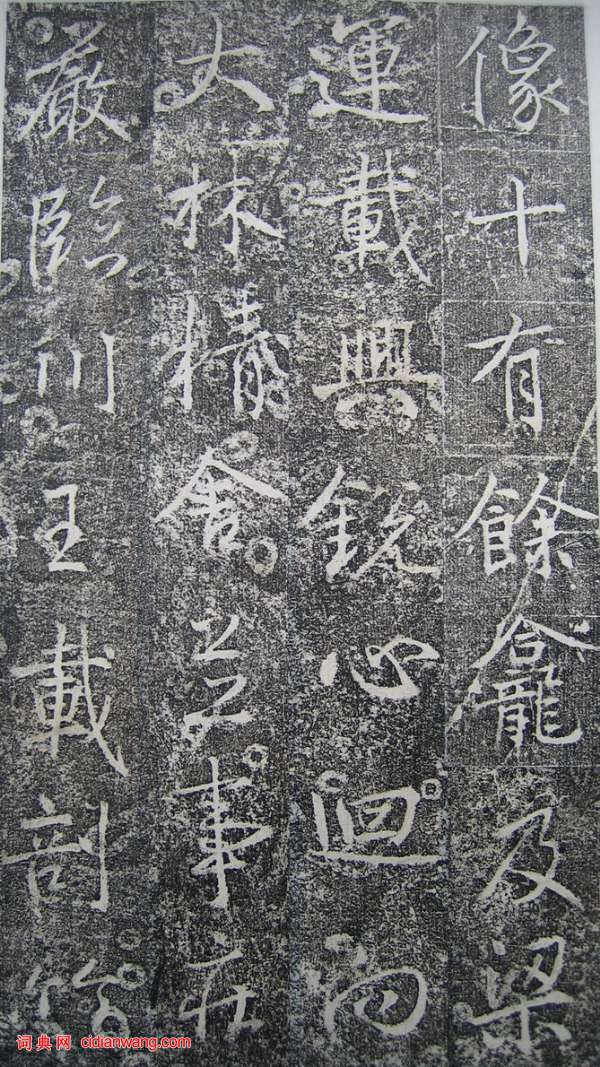 像十有餘龕及梁
運載興銳心迴向
大林精舍並事莊
嚴臨川王載剖符
词典网 cidianwang.com